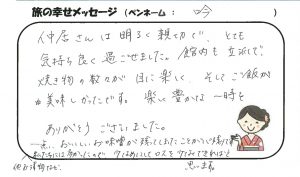 旅の幸せメッセージ（ペンネーム：吟）
仲居さんは明るく親切で、とても
気持ち良く過ごせました。館内も立派で
焼き物の数々が目に楽しく、そしてご飯が
美味しかったです。楽しく豊かな一時を
ありがとうございました。
一点、おいしいお味噌が残ってしまったことが
思います。